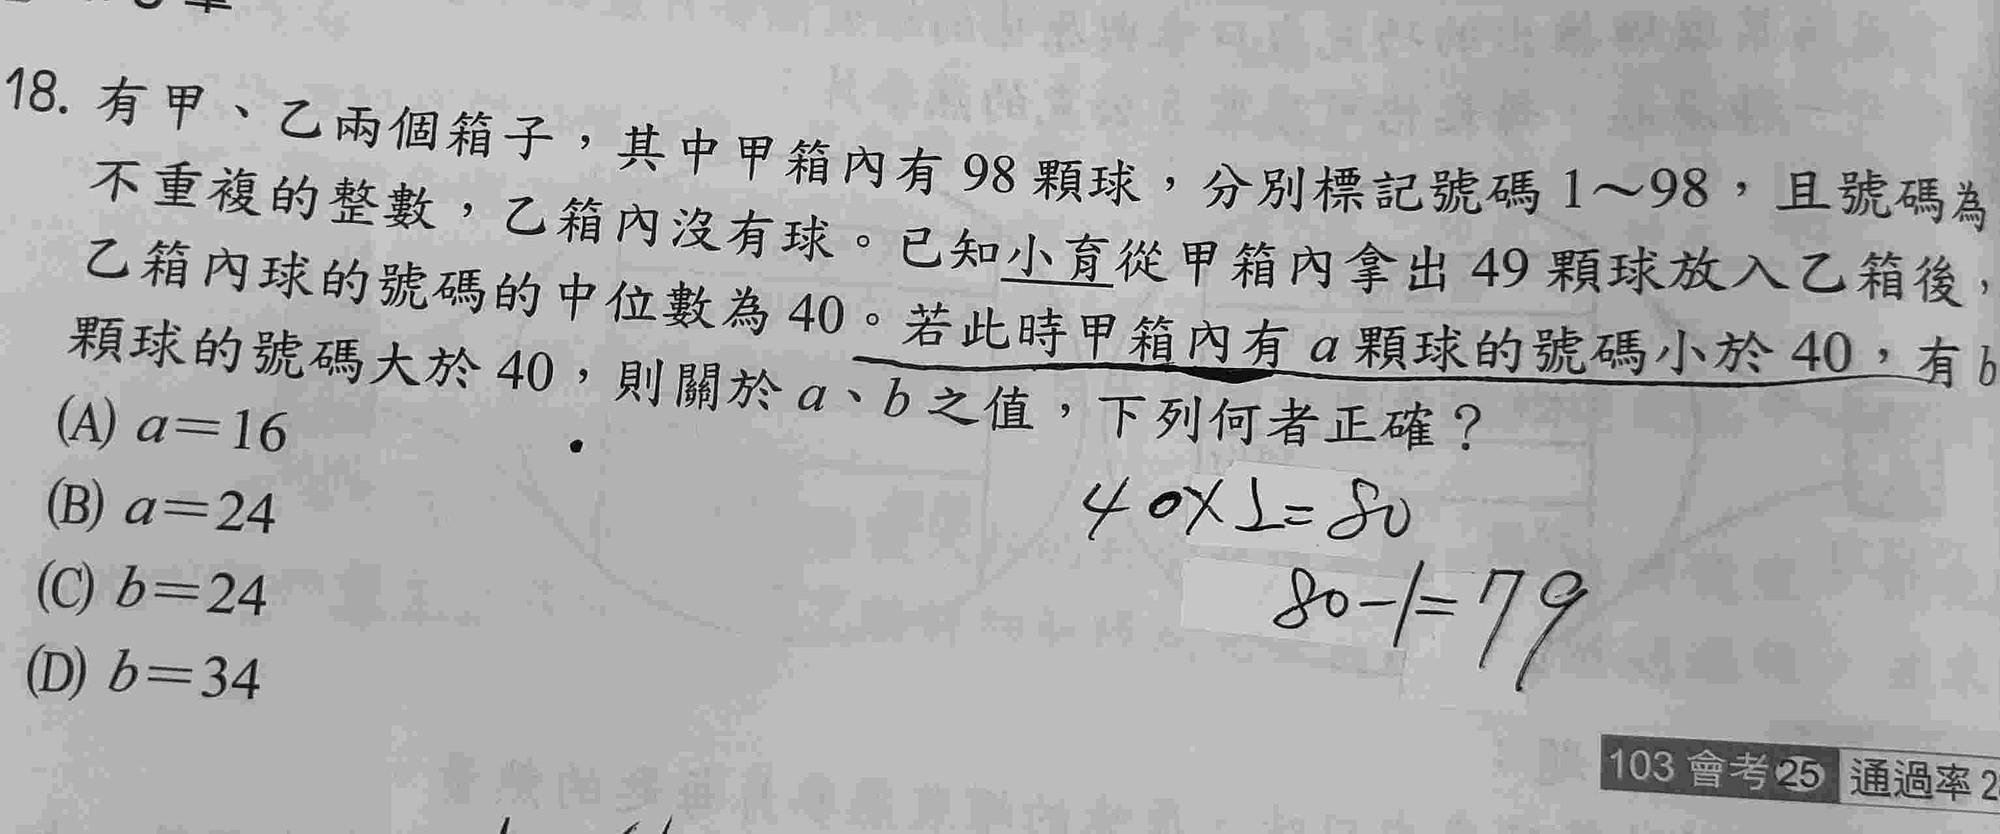 18. 有甲、乙兩個箱子，其中甲箱內有 98 顆球，分別標記號碼 1～98，且號碼為
不重複的整數，乙箱內沒有球。已知小育從甲箱內拿出 49 顆球放入乙箱後，
乙箱內球的號碼的中位數為 40。若此時甲箱內有 a 顆球的號碼小於 40，有 b
顆球的號碼大於 40，則關於 a、b 之值，下列何者正確？
(A) a＝16
(B) a＝24
(C) b＝24
(D) b＝34
40×2=80
80-1=79
103 會考 25 通過率 2